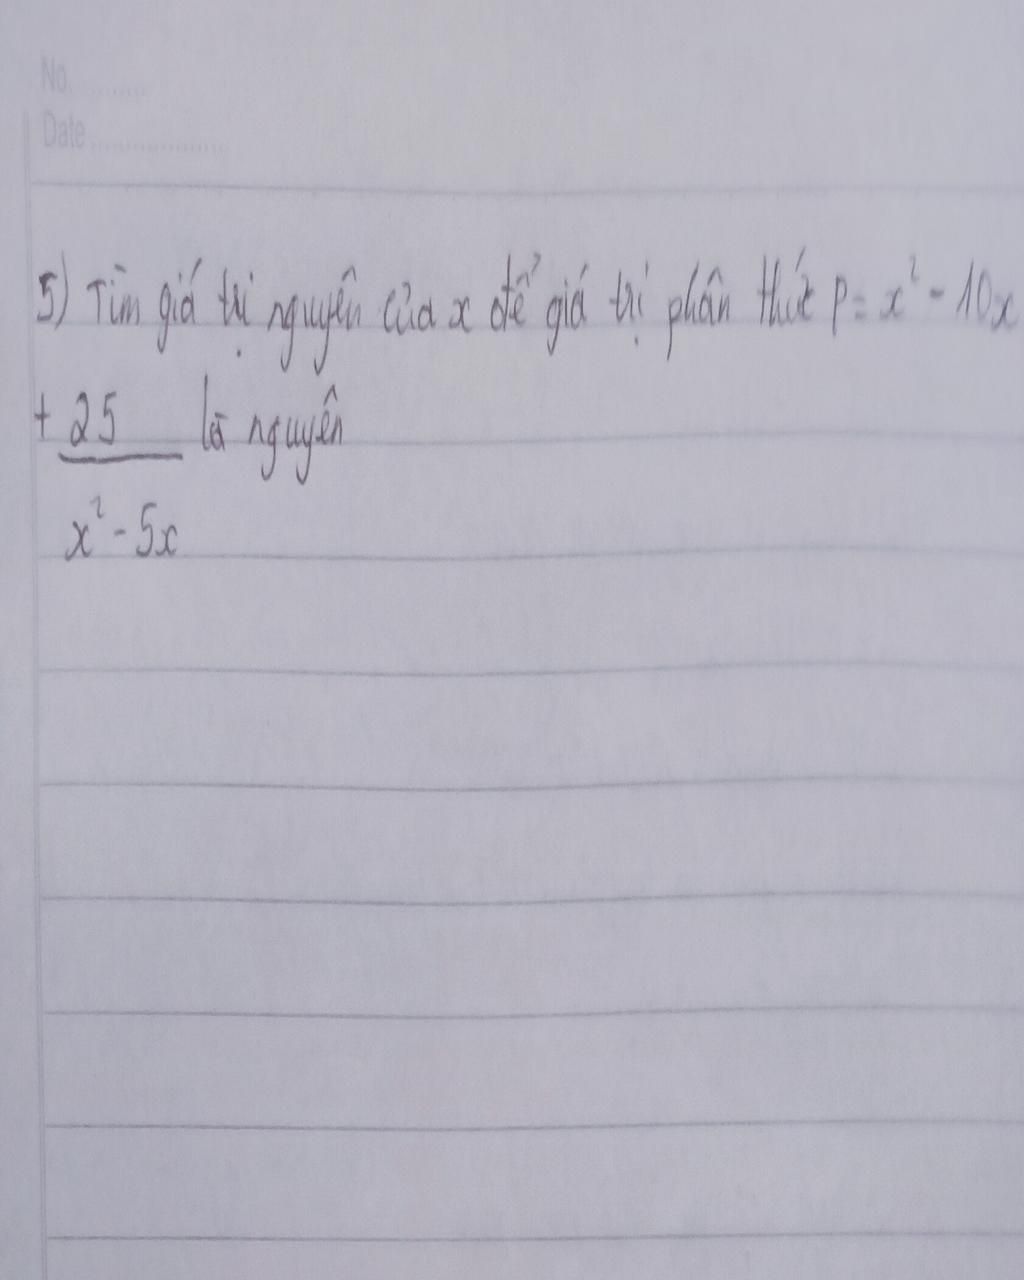 No.........
Date..................
5) Tìm giá trị nguyên của x để giá trị phân thức P = x² - 10x
+ 25 là nguyên
x² - 5x